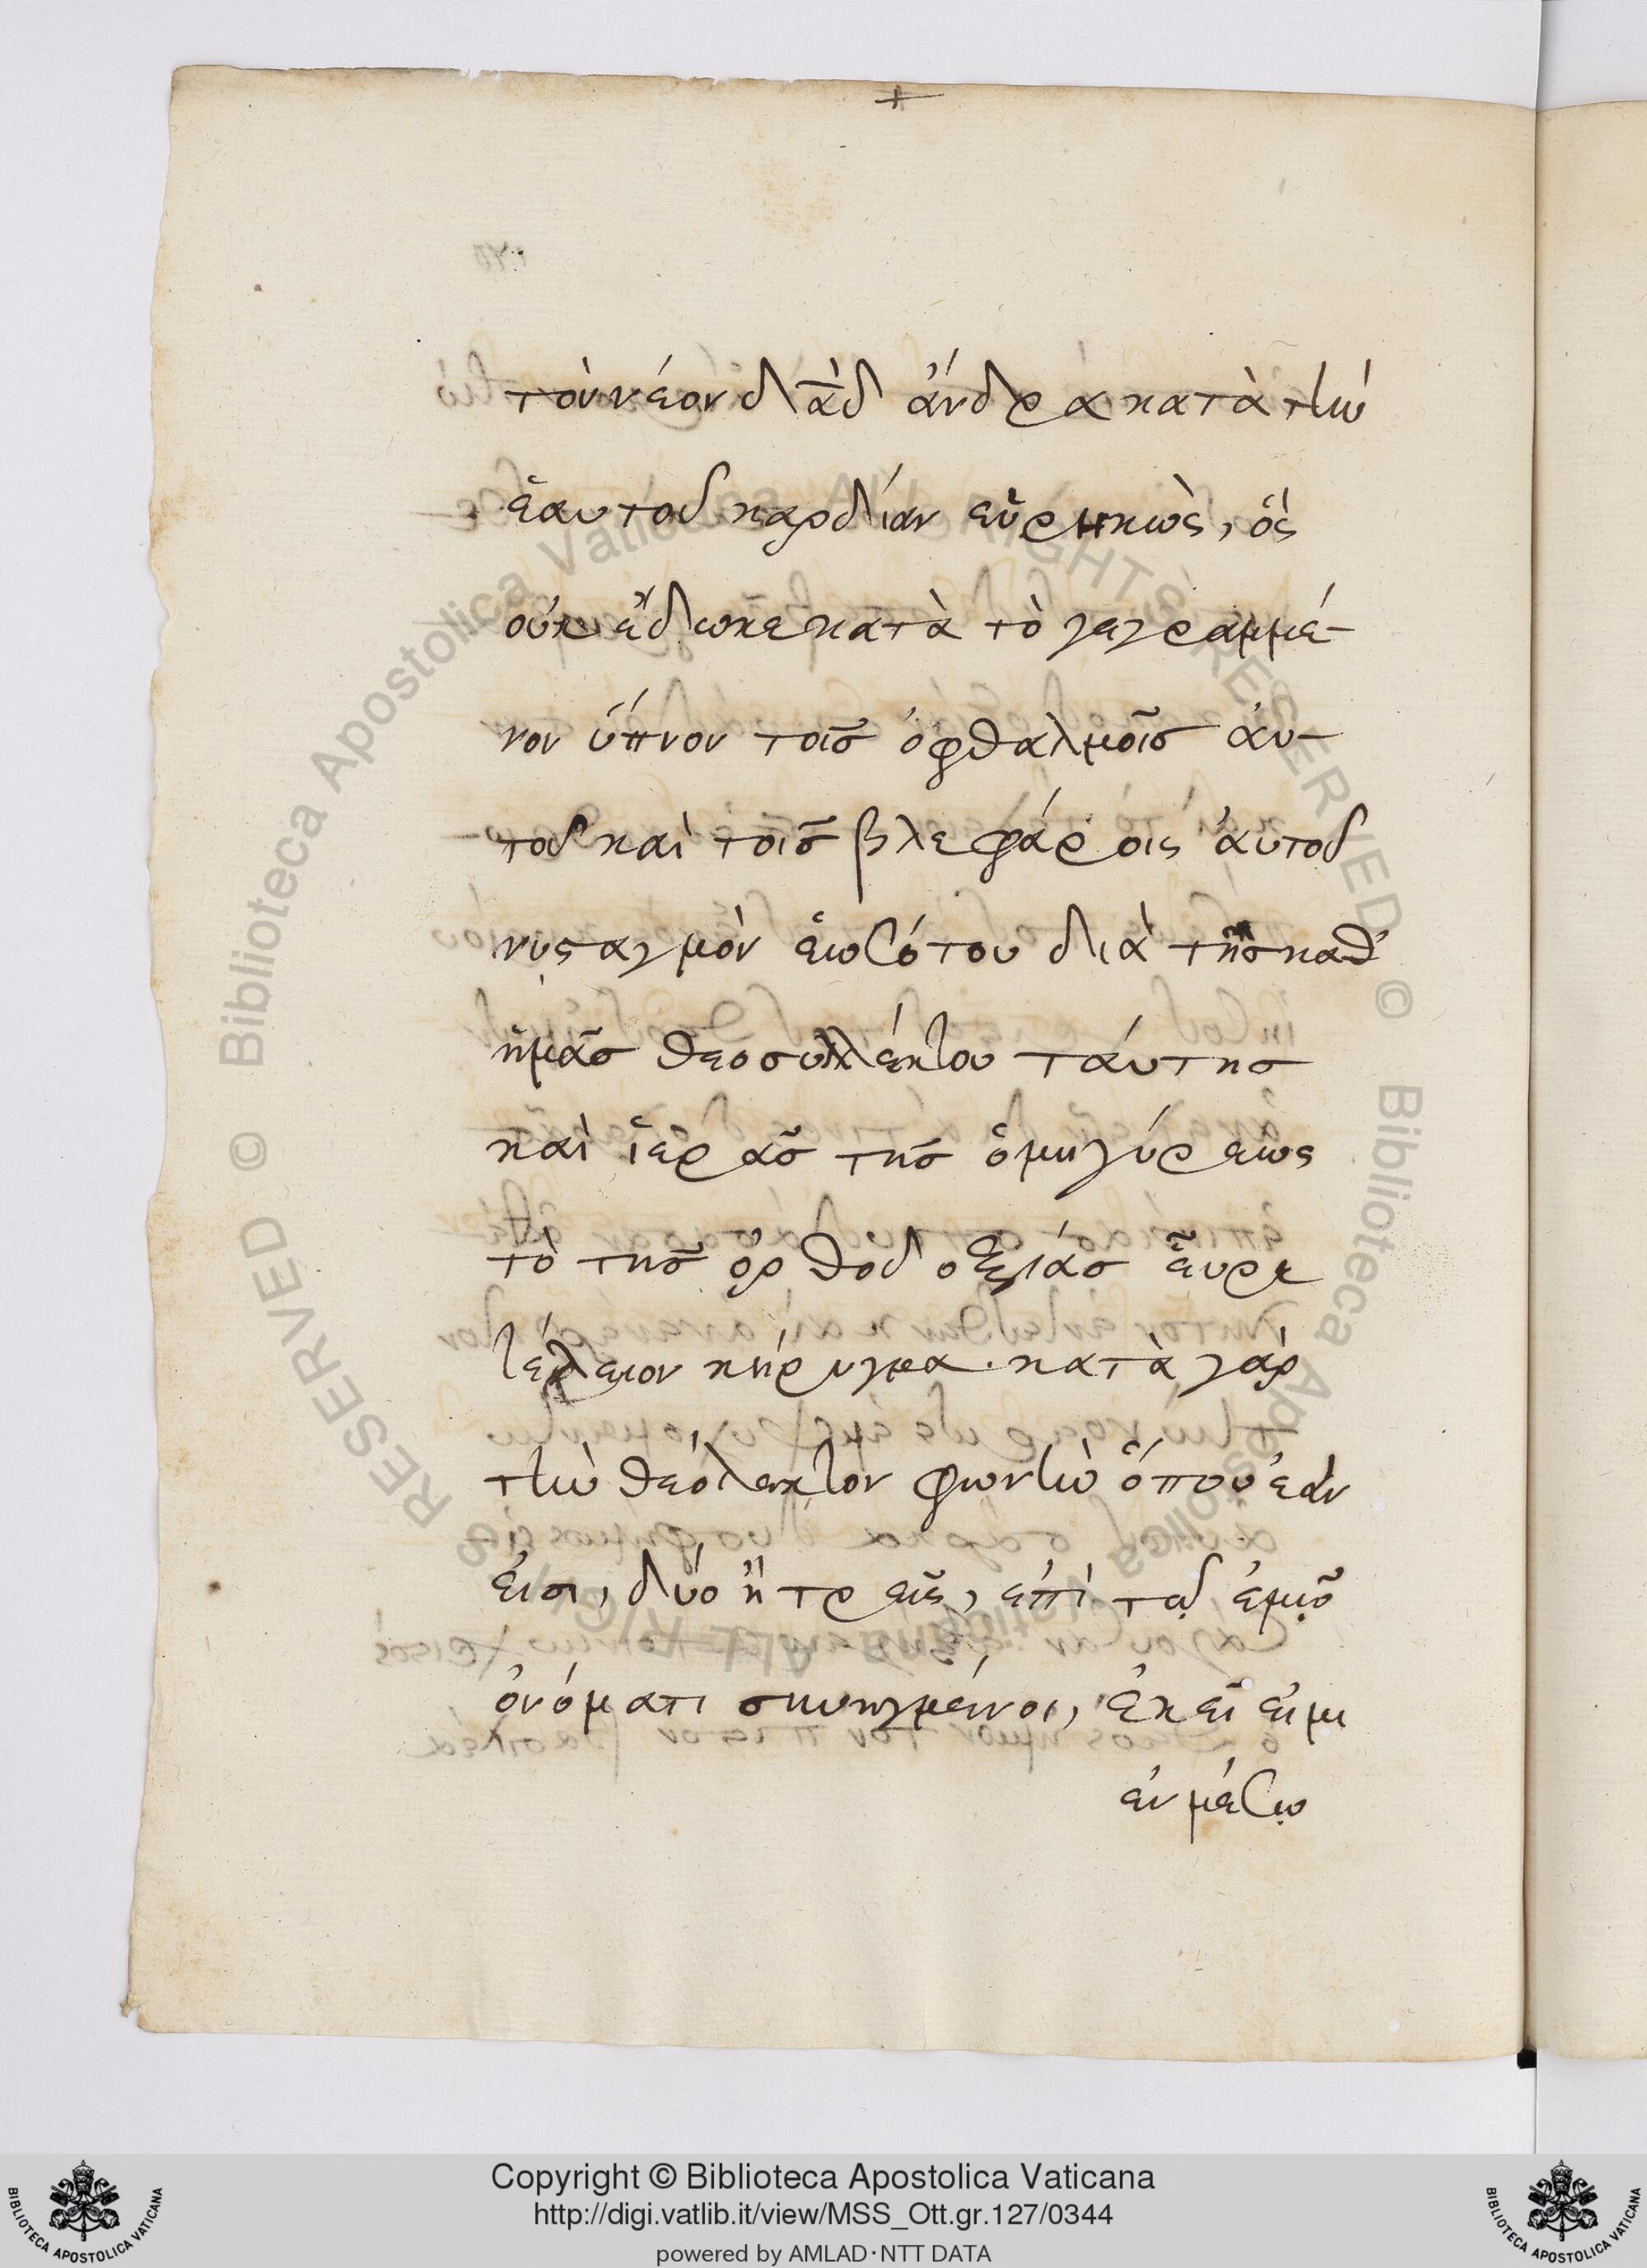 +
τὸν νέον δ̅α̅δ̅ ἄνδρα κατὰ τὴν
ἑαυτοῦ καρδίαν εὑρηκὼς, ὃς
οὐκ ἔδωκε κατὰ τὸ γεγραμμέ-
νον ὕπνον τοῖς ὀφθαλμοῖς ἀυ-
τοῦ καὶ τοῖς βλεφάροις ἀυτοῦ
νυσταγμὸν ἑωσότου διὰ τῆς καθ'
ἡμᾶς θεοσυλλέκτου ταύτης
καὶ ἱερᾶς τῆς ὁμηγύρεως
τὸ τῆς ὀρθοδοξίας εὗρε
τέλειον κήρυγμα· κατὰ γὰρ
τὴν θεόλεκτον φωνὴν ὅπου ἐὰν
εἰσι, δύο ἢ τρεῖς, ἐπὶ τῷ ἐμῷ
ὀνόματι συνηγμένοι, ἐκεῖ εἰμι
ἐν μέσῳ
© Biblioteca Apostolica Vaticana ALL RIGHTS RESERVED © Biblioteca Apostolica Vaticana ALL RIGHTS RESERVED
Copyright © Biblioteca Apostolica Vaticana
http://digi.vatlib.it/view/MSS_Ott.gr.127/0344
powered by AMLAD·NTT DATA
BIBLIOTECA APOSTOLICA VATICANA
BIBLIOTECA APOSTOLICA VATICANA